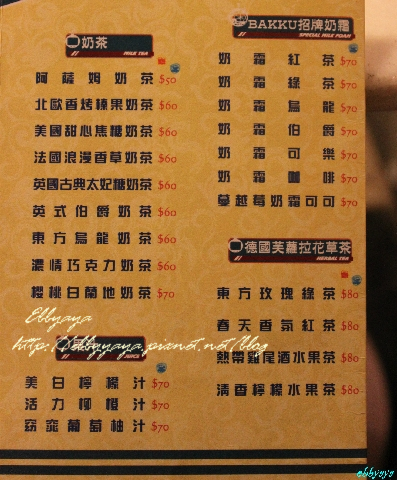 奶茶
MILK TEA
阿薩姆奶茶 $50
北歐香烤榛果奶茶 $60
美國甜心焦糖奶茶 $60
法國浪漫香草奶茶 $60
英國古典太妃糖奶茶 $60
英式伯爵奶茶 $60
東方烏龍奶茶 $60
濃情巧克力奶茶 $60
櫻桃白蘭地奶茶 $70
JUICE
美白檸檬汁 $70
活力柳橙汁 $70
窈窕葡萄柚汁 $70
BAKKU招牌奶霜
SPECIAL MILK FOAM
奶霜紅茶 $70
奶霜綠茶 $70
奶霜烏龍 $70
奶霜伯爵 $70
奶霜可樂 $70
奶霜咖啡 $70
蔓越莓奶霜可可 $70
德國芙蘿拉花草茶
HERBAL TEA
東方玫瑰綠茶 $80
春天香氛紅茶 $80
熱帶雞尾酒水果茶 $80
清香檸檬水果茶 $80
Ebbyaya
http://ebbyyaya.pixnet.net/blog
ebbyaya